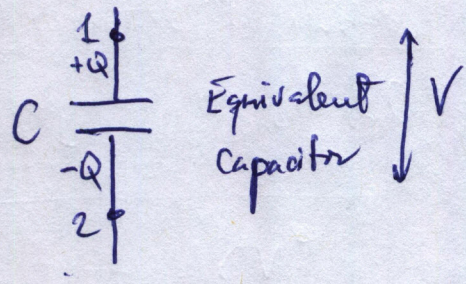 1
+Q
C
Equivalent
Capacitor
V
-Q
2